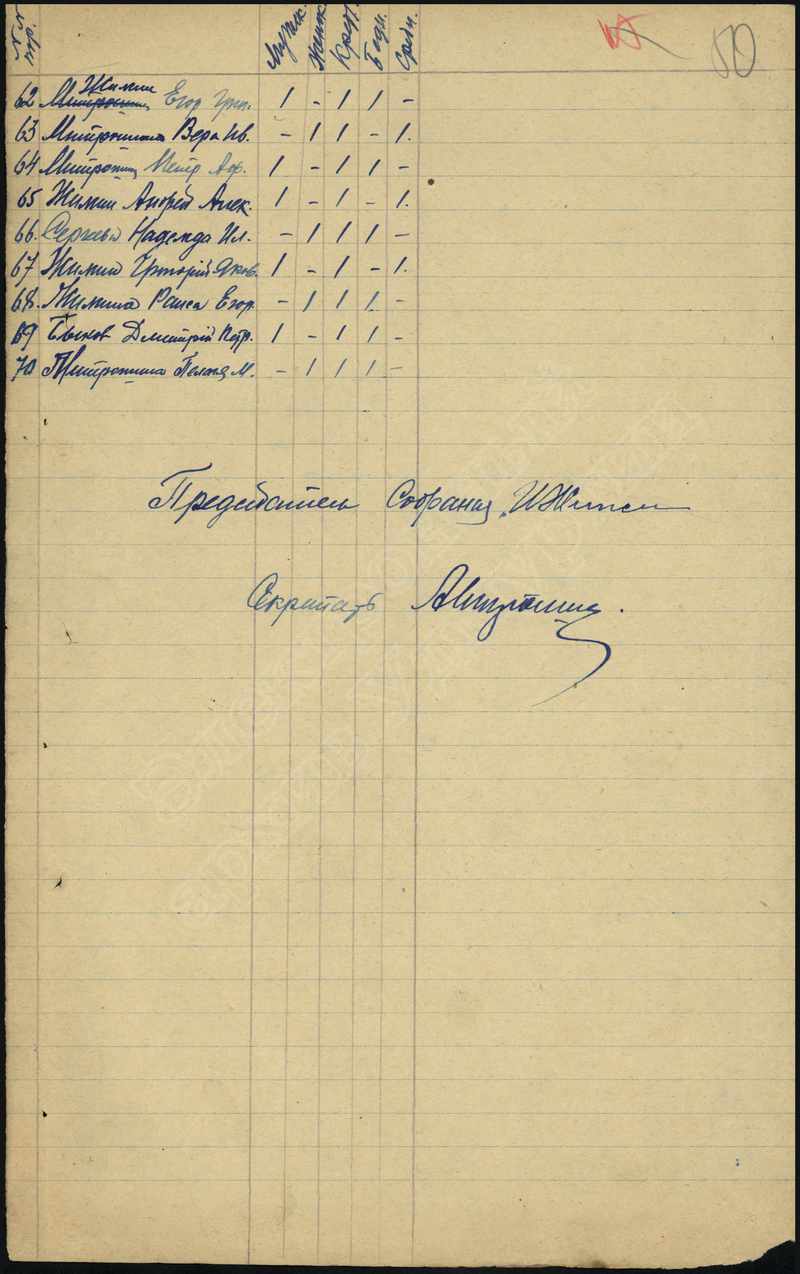 NN пр. Мужк. Женк. Крест. Бедн. Средн. 50
62 Жилин Егор Григ. 1 - 1 1 -
63 Митрошина Вера Ив. - 1 1 - 1.
64 Митрошин Петр Аф. 1 - 1 1 -
65 Жилин Андрей Алек. 1 - 1 - 1.
66. Надежда Ил. - 1 1 1 -
67 Жилин Григорій Яков. 1 - 1 - 1.
68. Жилина Раиса Егор. - 1 1 1 -
69 Быков Дмитрій Петр. 1 - 1 1 -
70 Митрошина Пелагя М. - 1 1 1 -
Председатель Собрания ИЖилин
Секретарь АМитрошин.